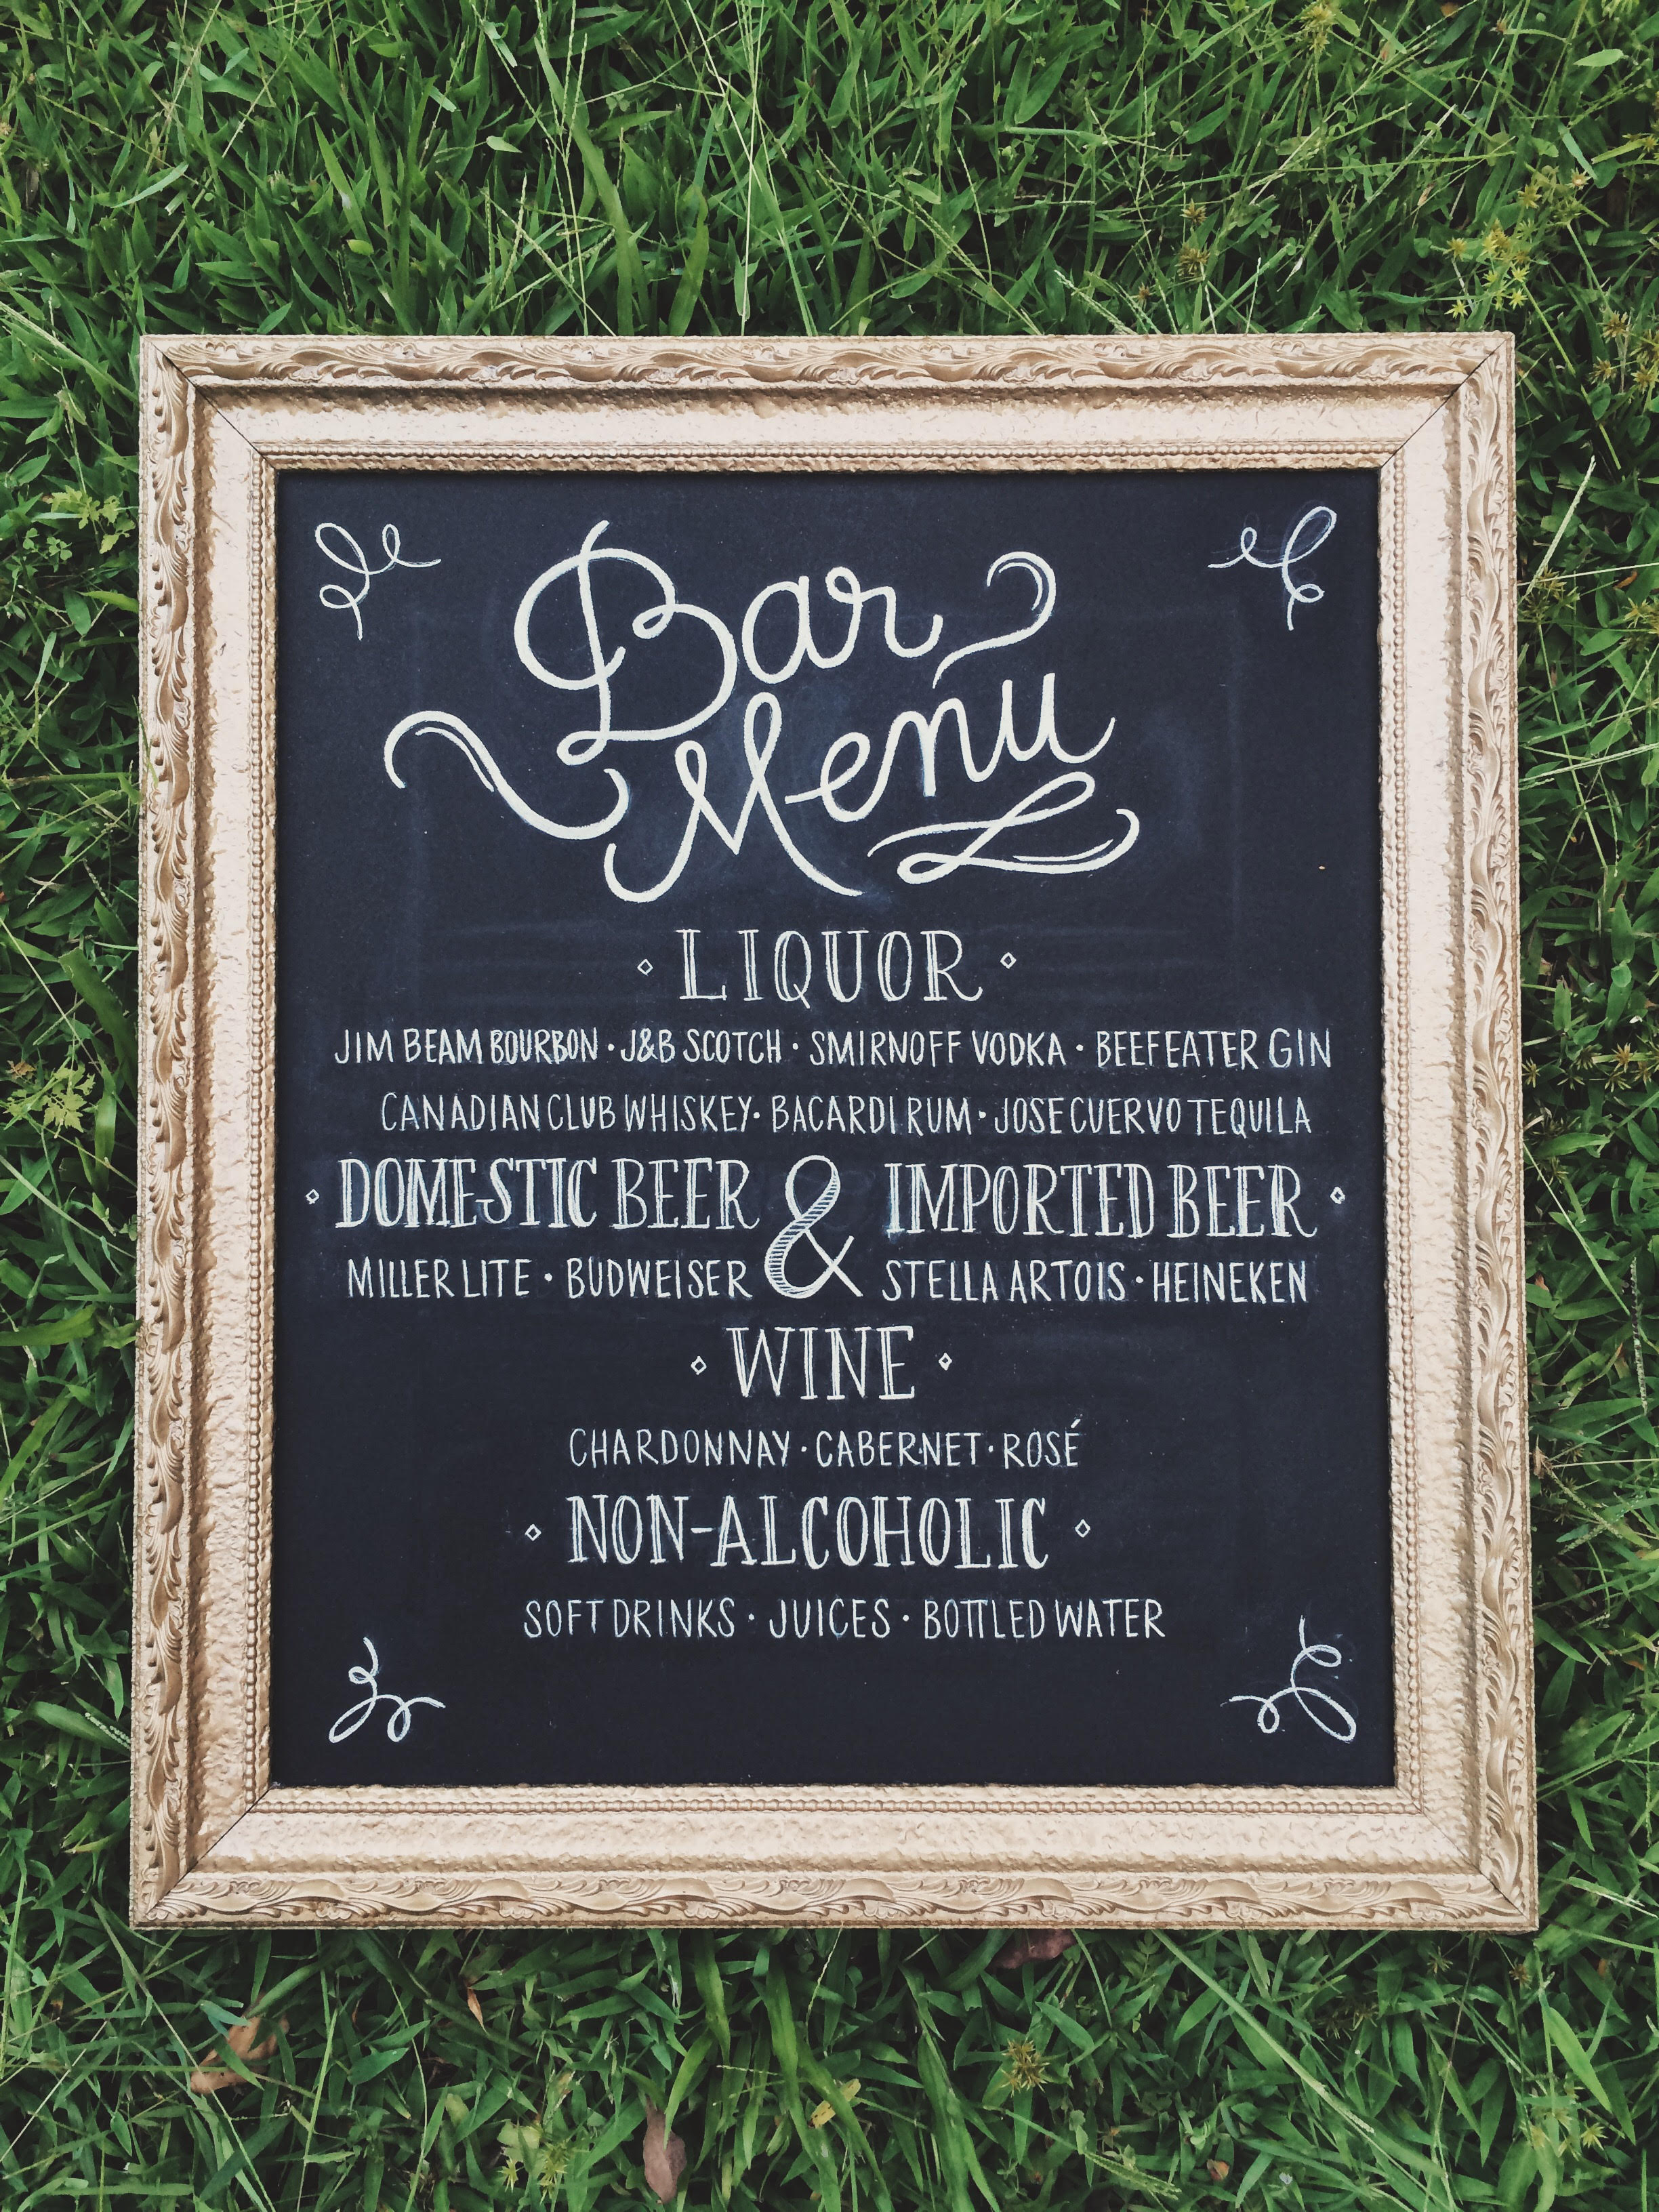 Bar
Menu
LIQUOR
JIM BEAM BOURBON · J&B SCOTCH · SMIRNOFF VODKA · BEEFEATER GIN
CANADIAN CLUB WHISKEY · BACARDI RUM · JOSE CUERVO TEQUILA
DOMESTIC BEER & IMPORTED BEER
MILLER LITE · BUDWEISER STELLA ARTOIS · HEINEKEN
WINE
CHARDONNAY · CABERNET · ROSÉ
NON-ALCOHOLIC
SOFT DRINKS · JUICES · BOTTLED WATER